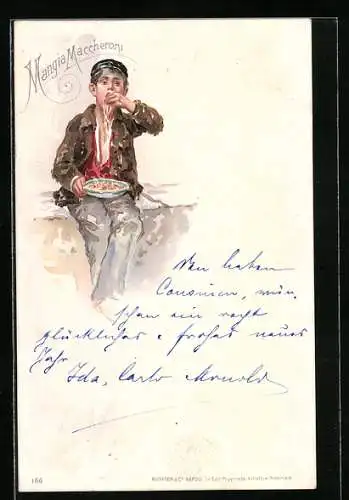 Mangia Maccheroni
Den lieben
Cousinen, wün-
schen ein recht
glückliches & frohes neues
Jahr
Ida, Carlo Arnold
166
RICHTER & Co. NAPOLI